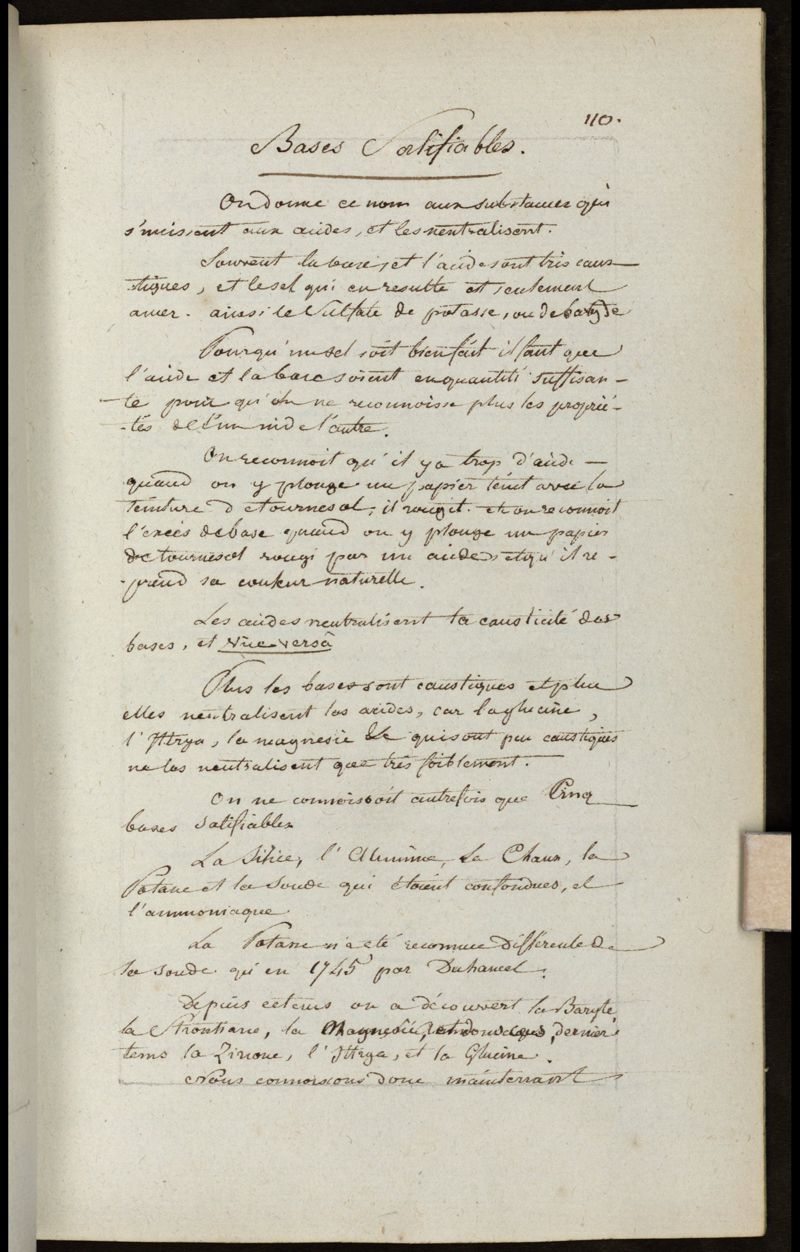 110.
Bases Salifiables.
On donne ce nom aux substances qui
s'unissent aux acides, et les neutralisent.
Souvent la base, et l'acide sont très caus-
-tiques, et le sel qui en resulte est seulement
amer. ainsi le Sulfate de potasse, ou de
Pourqu'un sel soit bien fait il faut que
l'acide et la base soient en quantité suffisan-
-te pour qu'on ne reconnoisse plus les proprié-
-tés de l'un ni de l'autre.
On reconnoit qu'il y a trop d'acide
quand on y plonge un papier teint avec la
teinture de tournesol, il rougit. et on reconnoit
l'excés de base quand on y plonge un papier
de tournesol rougi par un acide et qu'il re-
-prend sa couleur naturelle.
Les acides neutralisent la causticité des
bases, et vice versâ
Plus les bases sont caustiques et plus
elles neutralisent les acides, car la glucine,
l'Ittrya, la magnesie &c qui sont peu caustiques
ne les neutralisent que très foiblement.
On ne connoissoit autrefois que Cinq
bases salifiables
La Silice, l'Alumine, La Chaux, la
Potasse et la soude qui étoient confondues, et
l'ammoniaque
La Potasse n'a été reconnue différente de
la soude qu'en 1745 par Duhamel.
Depuis ce tems on a découvert la Baryte,
la Strontiane, la Magnesie, et dans ces dernier
tems la Zircone, l'Ittrya, et la Glucine.
Nous connoissons donc maintenant